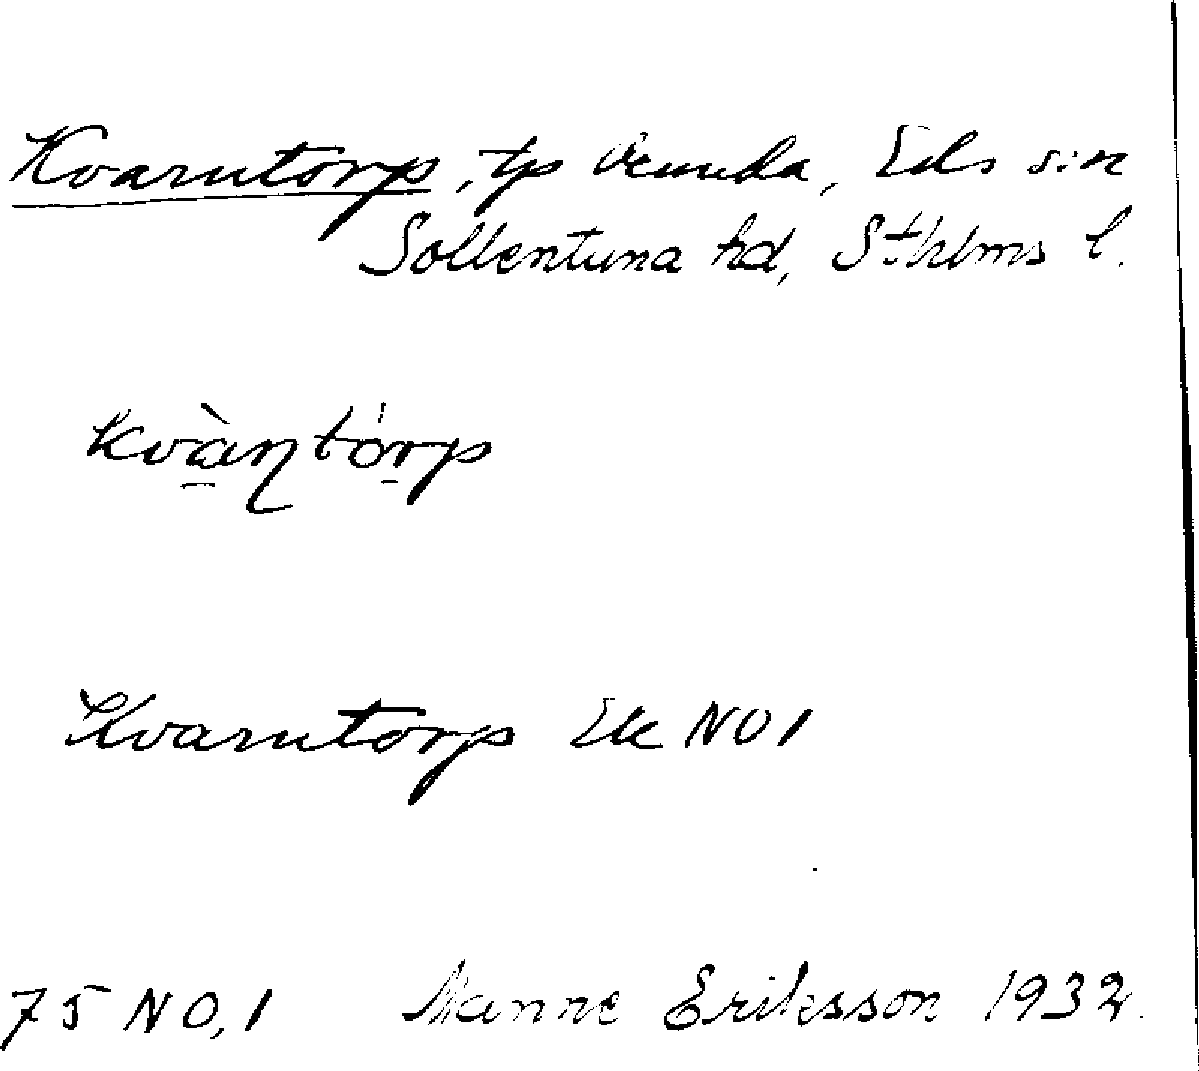 Kvarntorp, tp Vemuda, Eds sn
Sollentuna hd, Sthlms l.
kvàṇtór̠p
Kvarntorp Ek NO 1
75 NO, 1 Manne Eriksson 1932.